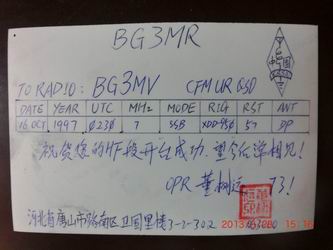 BG3MR
中国
TO RADIO: BG3MV CFM UR QSO
DATE YEAR UTC MHz MODE RIG RST ANT
16 OCT 1997 0230 7 SSB XDD-950 57 DP
祝贺您的HF段开台成功.望今后常相见!
OPR 董 73!
河北省唐山市路南区卫国里楼3-2-302 063000
2013 15:16